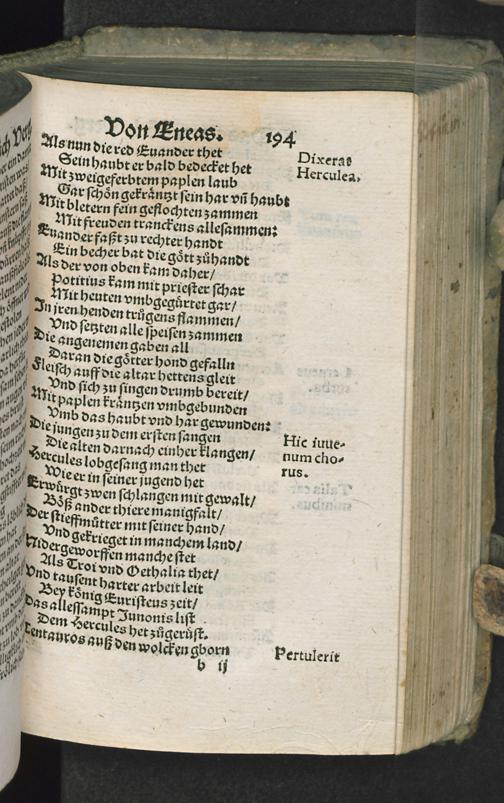 Von Eneas. 194
Als nun die red Euander thet
Sein haubt er bald bedecket het
Mit zweigeferbtem paplen laub
Gar schön gekräntzt sein har vñ haubt
Mit bletern fein geflochten zammen
Mit freuden tranckens allesammen:
Euander faßt zu rechter handt
Ein becher bat die gött zůhandt
Als der von oben kam daher/
Potitius kam mit priester schar
Mit heuten vmbgegürtet gar/
In jren henden trůgens flammen/
Vnd setzten alle speisen zammen
Die angenemen gaben all
Daran die götter hond gefalln
Fleisch auff die altar hettens gleit
Vnd sich zu singen drumb bereit/
Mit paplen kräntzen vmbgebunden
Vmb das haubt vnd har gewunden:
Die jungen zu dem ersten sangen
Die alten darnach einher klangen/
Hercules lobgesang man thet
Wie er in seiner jugend het
Erwürgt zwen schlangen mit gewalt/
Böß ander thiere manigfalt/
Der stieffmůtter mit seiner hand/
Vnd gekrieget in manchem land/
Nidergeworffen manche stet
Als Troi vnd Oethalia thet/
Vnd tausent harter arbeit leit
Bey König Euristeus zeit/
Das allessampt Junonis list
Dem Hercules het zůgerüst.
Centauros auß den wolcken gborn
b ij
Dixeras
Herculea.
Hic iuue-
num cho-
rus.
Pertulerit